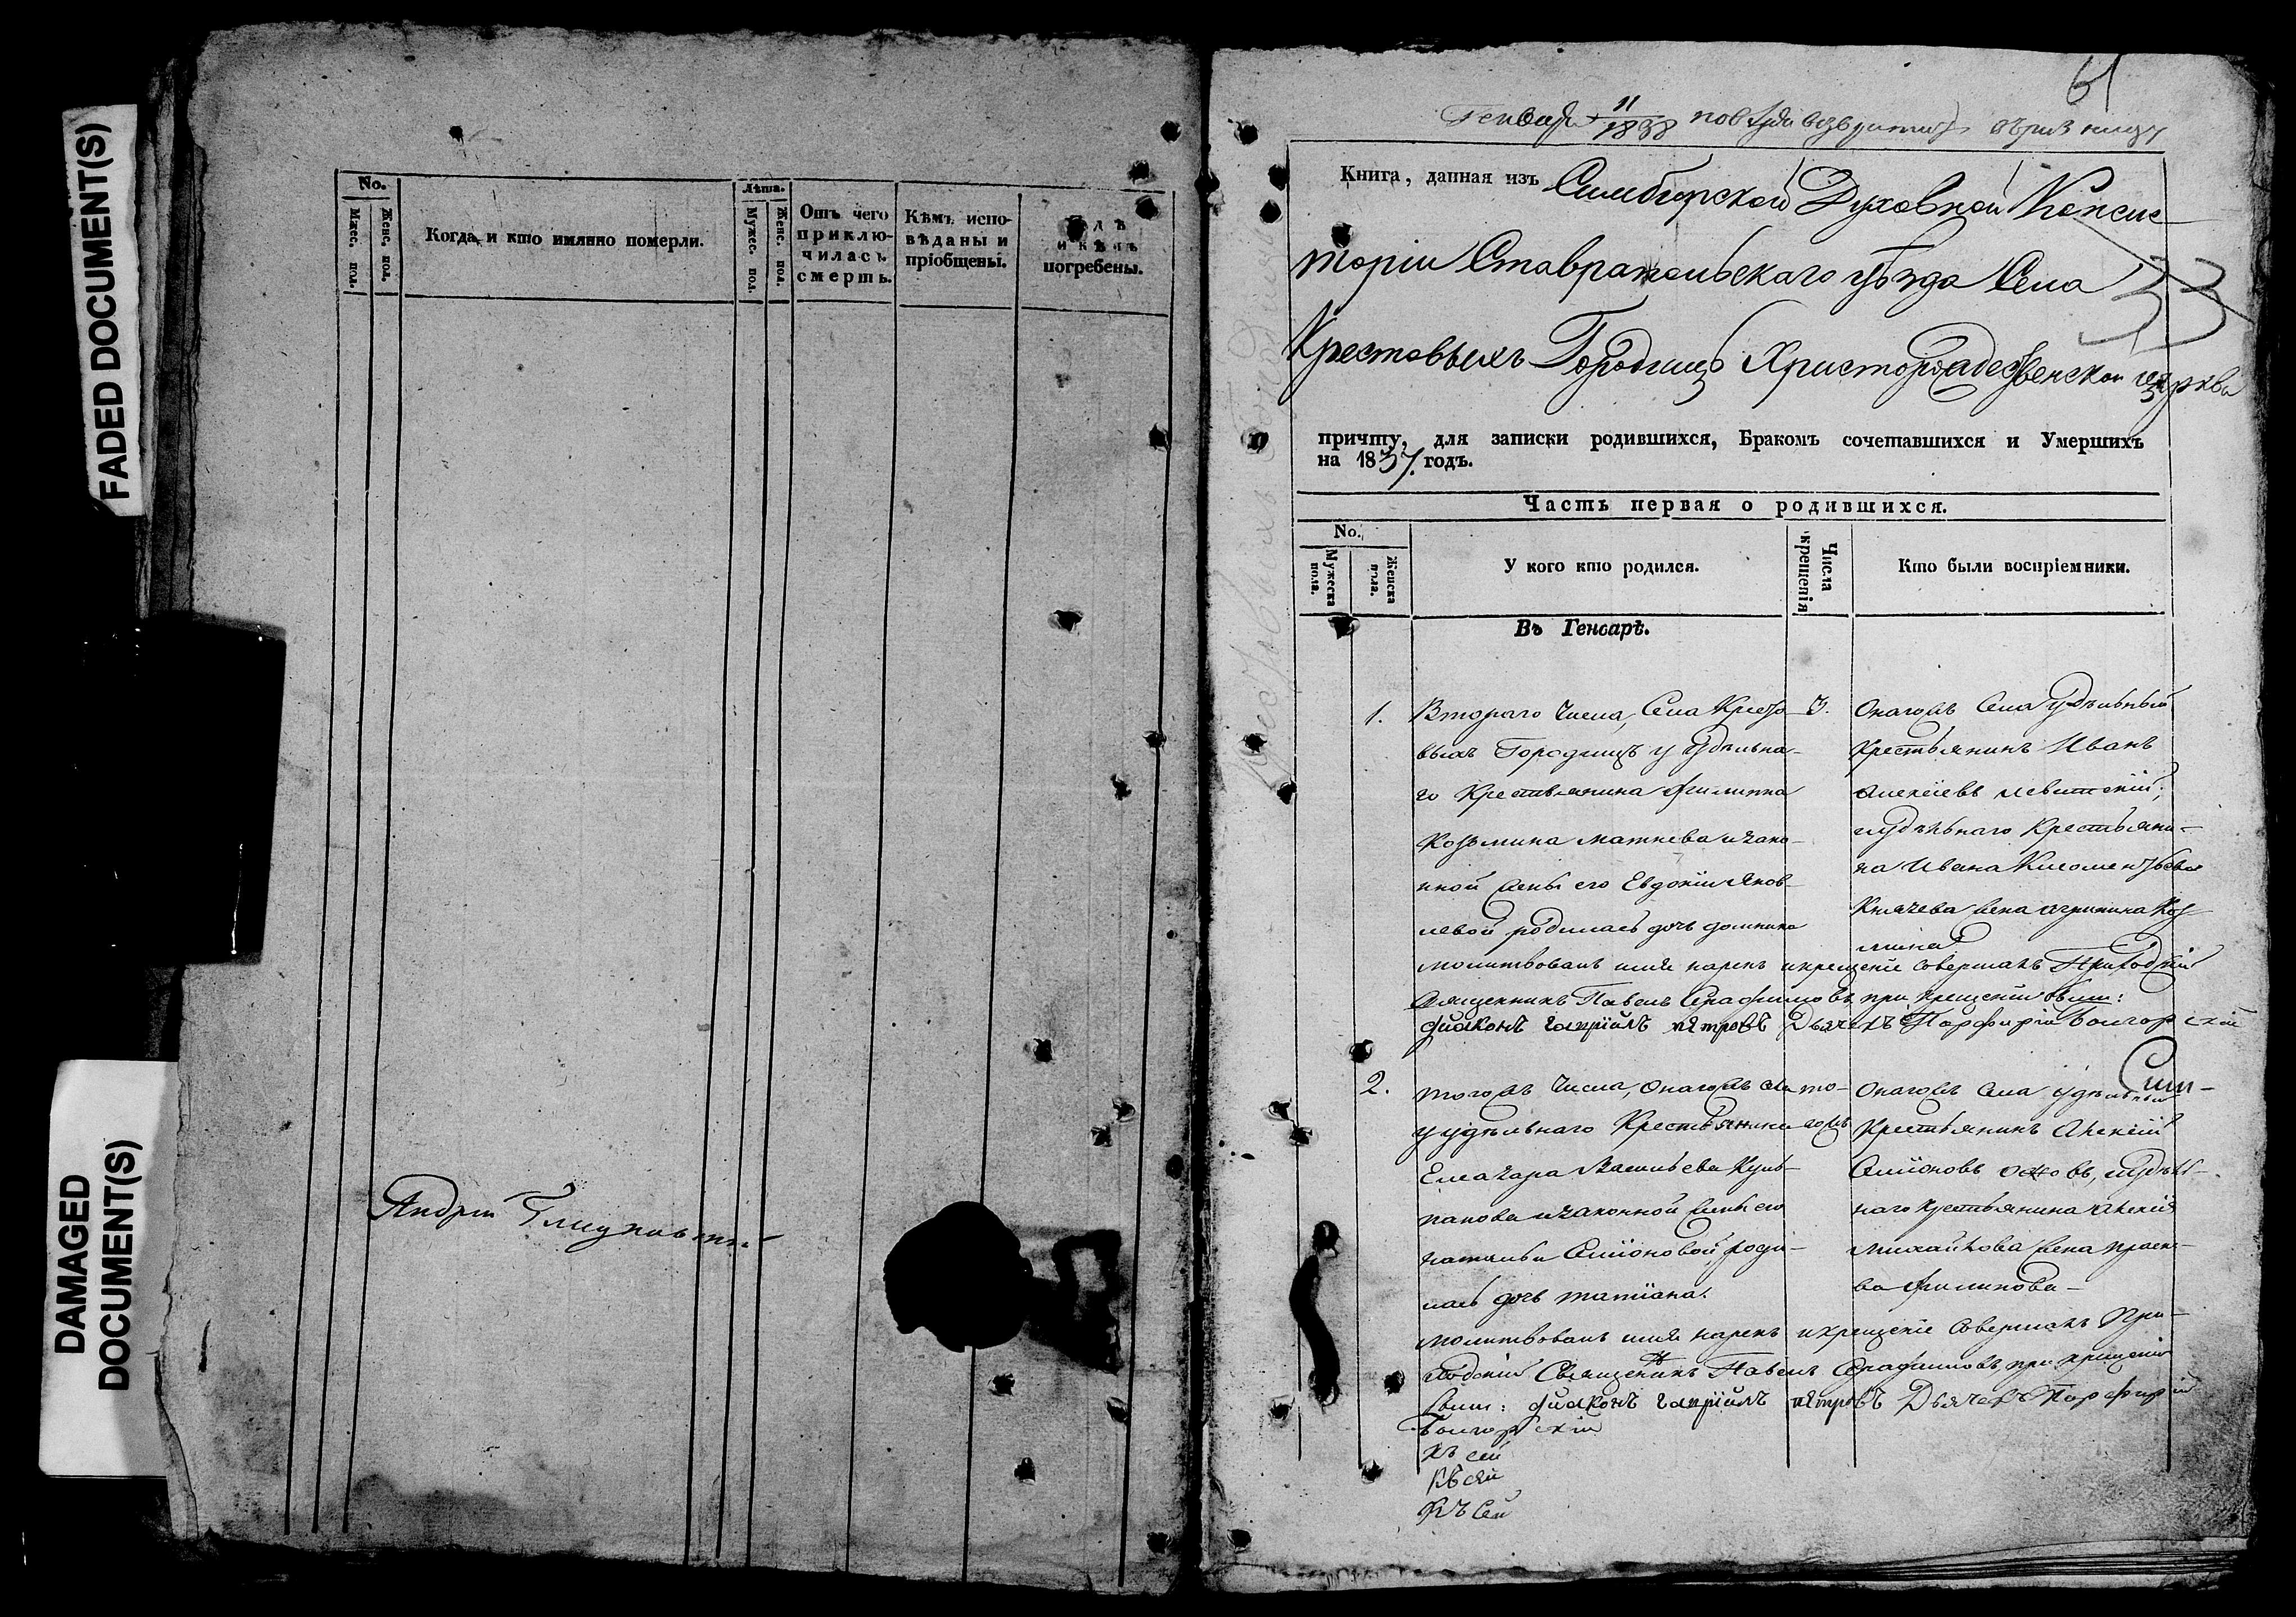 FADED DOCUMENT(S)
DAMAGED
DOCUMENT(S)
No.
Мжес. пол.
Женс. пол.
Когда и кто имянно померли.
Лѣта.
Мужес. пол.
Женс. пол.
Отъ чего
приклю-
чилась
смерть.
Кѣмъ испо-
вѣданы и
пріобщены.
и кѣмъ
погребены.
Андрей
61
Генваря 11 1838
Книга, данная изъ Симбирской Духовной Консис-
торіи Ставрапольскаго уѣзда Села
33
Крестовыхъ Городищь Христорождественской церкви
причту, для записки родившихся, Бракомъ сочетавшихся и Умершихъ
на 1837. годъ.
Часть первая о родившихся.
No.
Мужеска пола.
Женска пола.
У кого кто родился.
Числа крещенія
Кто были воспріемники.
Въ Генварѣ.
1.
Втораго числа, Села Кресто
выхъ Городищь у Удѣльна-
го Крестьянина Филиппа
Козьмина Матнева и зако-
нной жены его Евдокіи Яков-
левой родилась дочь Домника
3.
Онагожъ Села Удѣльный
Крестьянинъ Иванъ
Алексѣевъ Левитскій,
и удѣльнаго Крестьяни-
на Ивана Климентьева
Князева жена Агрипина Коз
мина
молитвовалъ имя нарекъ и крещеніе совершалъ Приходскій
Священникъ Павелъ Серафимовъ при крещеніи были:
діаконъ Гавріилъ Петровъ Дьячекъ Порфирій Болгарскій
2.
Тогожъ числа, Онагожъ села
у удѣльнаго Крестьянина
Елеазара Васильева Куп-
панова и законной жены его
Натальи Симіоновой, роди-
лась дочь Татіана.
то-
гожъ
Сим-
Онагожъ Села удѣльный
Крестьянинъ Алексій
Симіоновъ, и удѣль-
наго Крестьянина Алексія
Михайлова жена Праск-
ва Филипова
молитвовалъ имя нарекъ и крещеніе совершалъ При-
ходскій Священникъ Павелъ Серафимовъ, при крещеніи
были: діаконъ Гавріилъ Петровъ Дьячекъ Порфирій
Болгарскій
Къ сей
Къ сей
Къ Сей